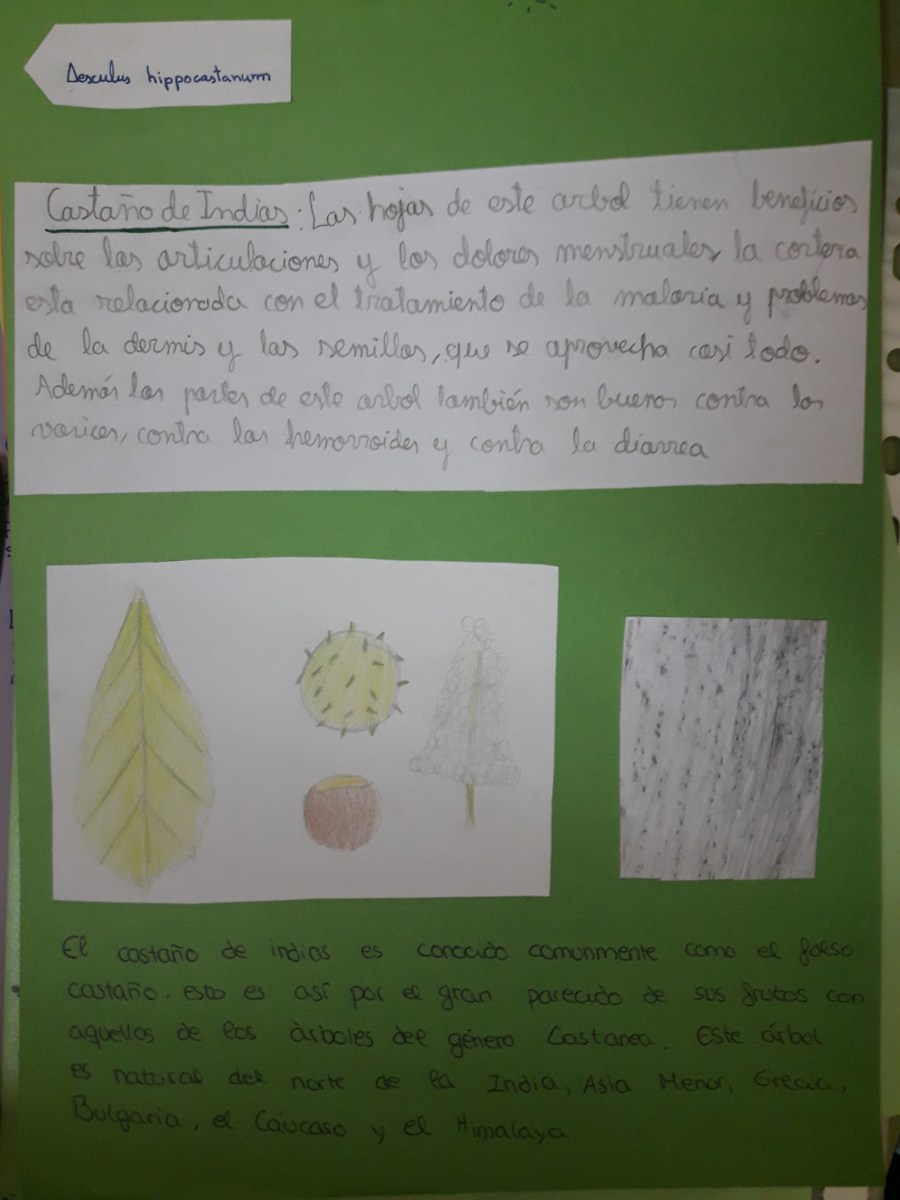 Aesculus hippocastanum
Castaño de Indias: Las hojas de este arbol tienen beneficios
sobre las articulaciones y los dolores menstruales, la corteza
esta relacionada con el tratamiento de la malaria y problemas
de la dermis y las semillas, que se aprovecha casi todo.
Además las partes de este arbol también son buenas contra las
varices, contra las hemorroides y contra la diarrea
El castaño de indias es conocido comunmente como el falso
castaño. esto es así por el gran parecido de sus frutos con
aquellos de los àrboles del género Castanea. Este árbol
es natural del norte de la India, Asia Menor, Grecia,
Bulgaria, el Caúcaso y el Himalaya.